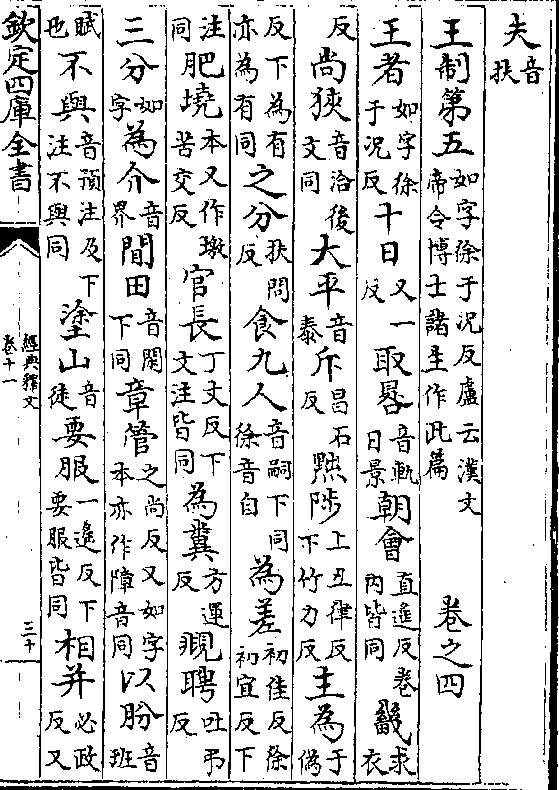 夫音扶
王制第五如字徐于況反盧云漢文帝令博士諸生作此篇 卷之四
王者如字徐于況反十日又一反取晷音軌日景朝會直遥反卷內皆同畿求衣
反尚狹音洽後文同大平音泰斥昌石反黜陟上丑律反下竹力反主為于偽
反下為有亦為有同之分扶問反食九人音嗣下同徐音自為差初佳反徐初宜反下
注同肥墝本又作墽苦交反官長丁丈反下文注皆同為糞方運反覜聘吐弔反
三分如字為介音界間田音閑下同章管之尚反又如字本亦作障音同以朌音班
賦也不與音預注及下注不與同塗山音徒要服一遥反下要服皆同相并必政反又
欽定四庫全書
經典釋文
卷十一
三十